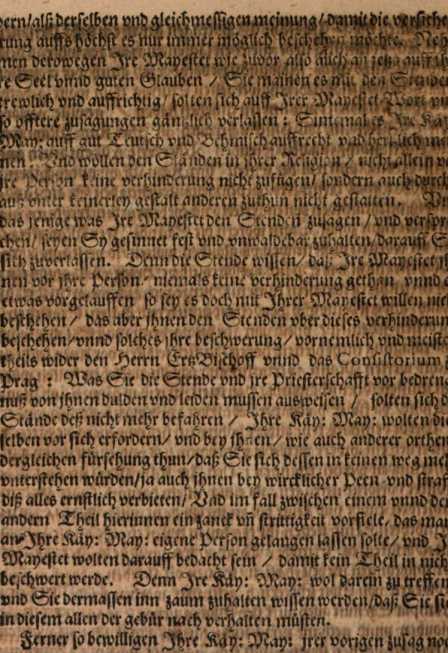 dern/als derselben vnd gleichmessigen meinung/damit die versiche
rung auffs höchst es nur immer möglich beschehen möchte. Neh
men derowegen an Jre Mayestet wie zuvor also auch an jetzo auff ih
re Seel vnnd guten Glauben / Sie mainen es mit den Stenden
trewlich vnd auffrichtig/solten sich auff Jrer Mayestet Wort vnd
so offtere zusagungen gäntzlich verlassen: Sintemal es Jre Kay:
May: auff gut Teutsch vnd Behmisch auffrecht vnd hertzlich mei
nen. Vnd wollen den Ständen in jhrer Religion / nicht allein vor
jre Person keine verhinderung nicht zufügen/sondern auch durch
auß vnter keinerley gestalt anderen zuthun nicht gestatten. Vnd
das jenige was Jre Mayestet den Stenden zusagen/vnd verspre
chen/seyen Sy gesinnet fest vnd vnwandelbar zuhalten/darauff S
sich zuverlassen. Denn die Stende wissen/daß Jre Mayestet jh
nen vor jhre Person/niemals keine verhinderung gethan vnnd o
etwas vorgelauffen so sey es doch mit Jhrer Mayestet willen nit
beschehen/das aber jhnen den Stenden vber dieses verhinderun
beschehen/vnnd solches jhre beschwerung/vornemlich vnd meiste
theils wider den Herrn Ertz Bischoff vnnd das Consistorium z
Prag: Was Sie die Stende vnd jre Priesterschafft vor bedren
nuß von jhnen dulden vnd leiden mussen außweisen / solten sich d
Stände deß nicht mehr befahren / Jhre Käy: May: wolten die
selben vor sich erfordern/vnd bey jhnen/wie auch anderer orthen
dergleichen fürsehung thun/daß Sie sich dessen in keinen weg meh
vnterstehen würden/ja auch jhnen bey wircklicher Peen vnd straf
diß alles ernstlich verbieten/Vnd im fall zwischen einem vnnd de
andern Theil hierinnen ein zanck vn̄ strittigkeit vorfiele/das ma
an Jhre Käy: May: eigene Person gelangen lassen solle/vnd J
Mayestet wolten darauff bedacht sein / damit kein Theil in nich
beschwert werde. Denn Jre Käy: May: wol darein zu treffen
vnd Sie dermassen inn zaum zuhalten wissen werden/daß Sie sie
in diesem allen der gebür nach verhalten müsten.
Ferner so bewilligen Jhre Käy: May: jrer vorigen zusag noc